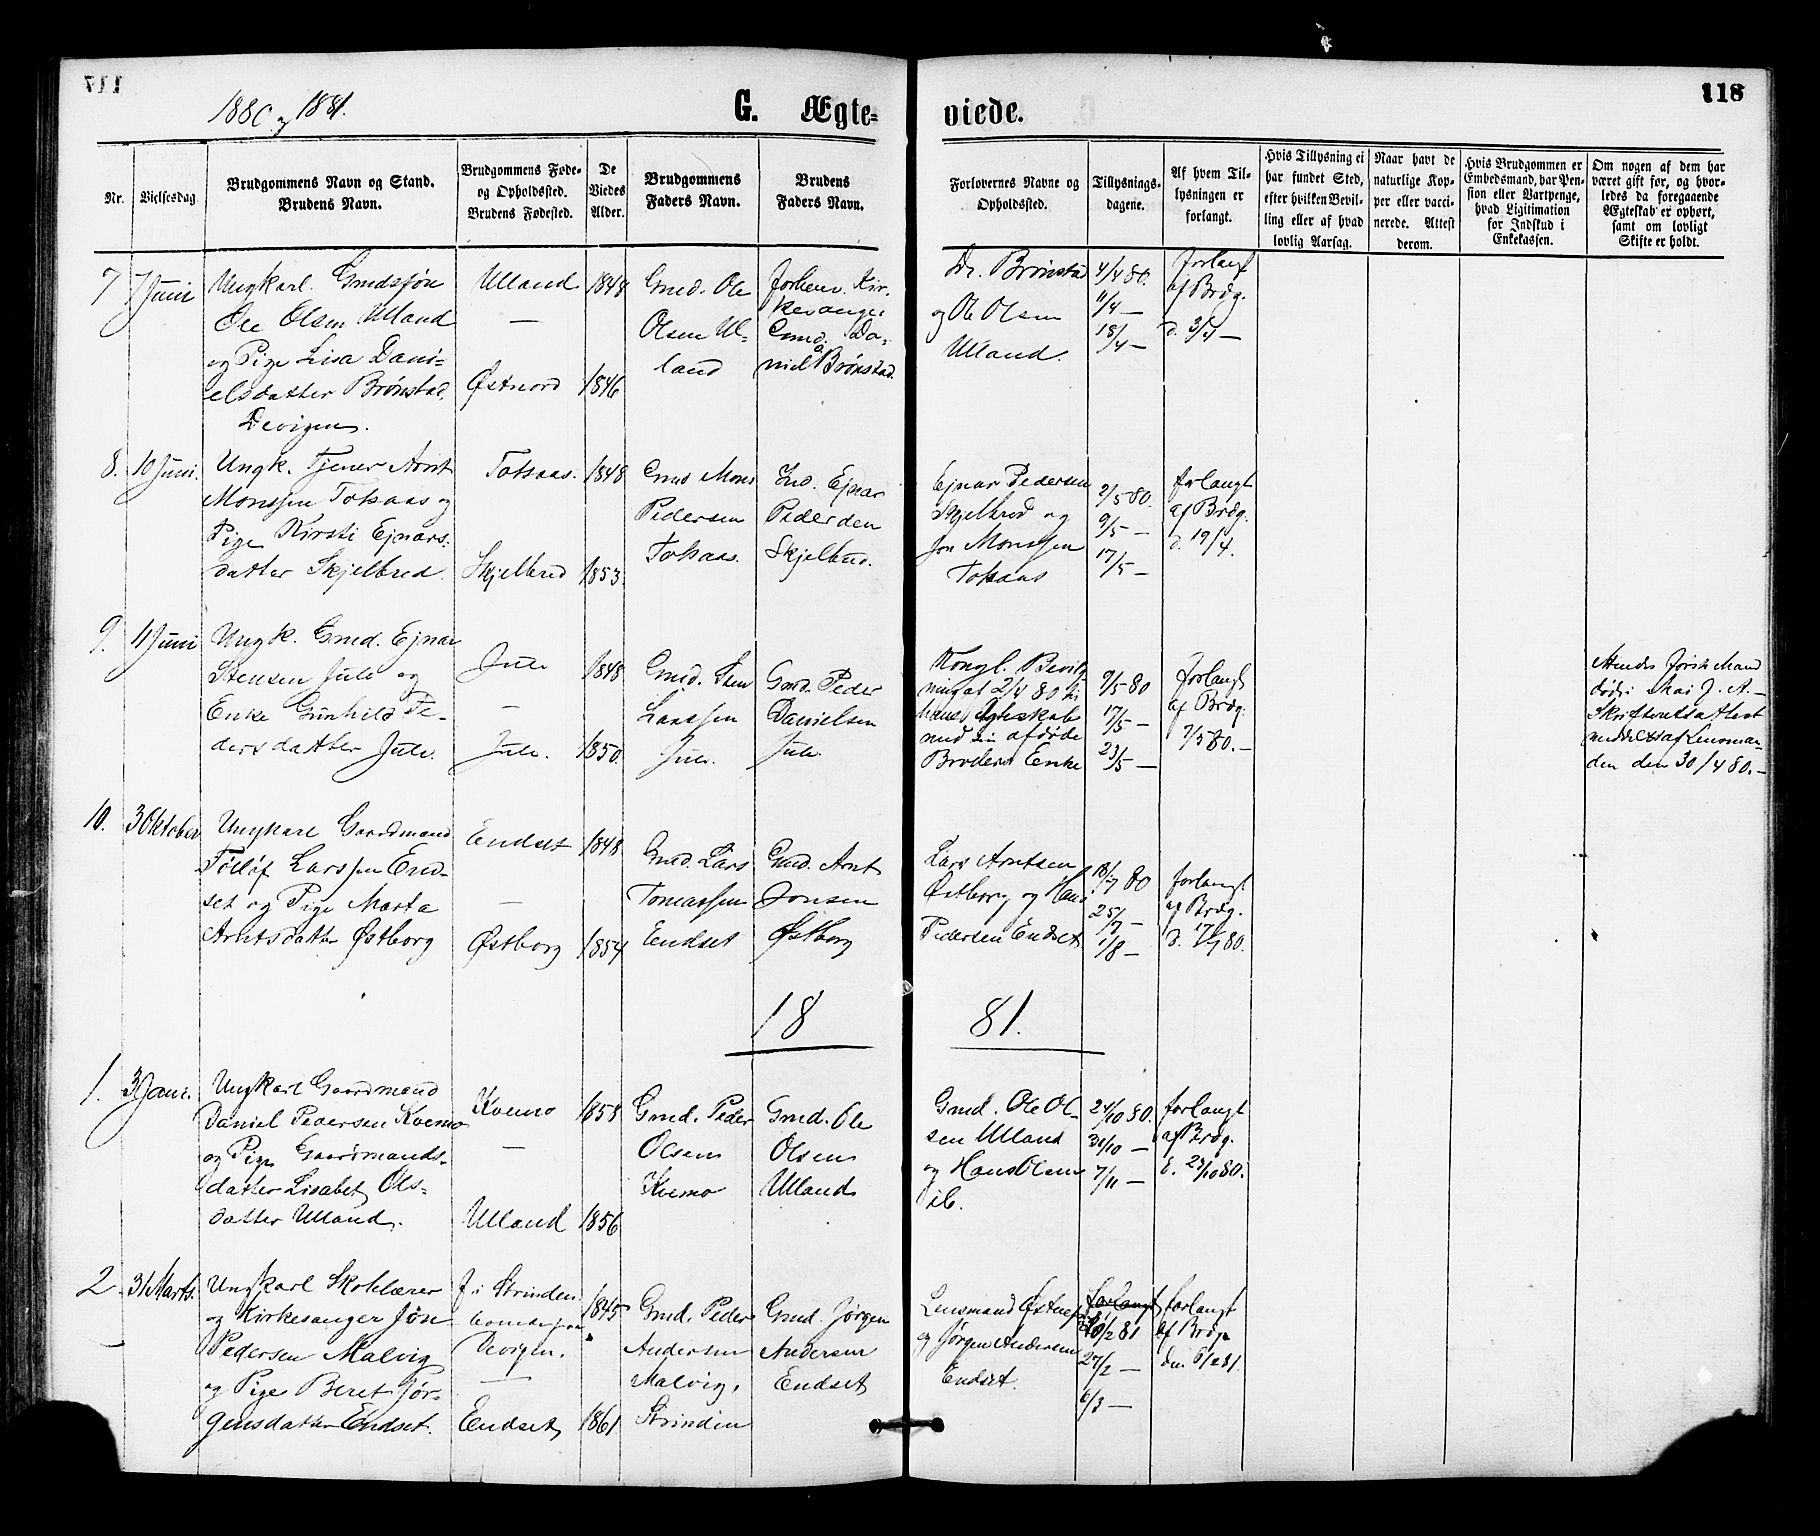 117
118
1880 og 1881.
G. Ægte=
viede.
Nr.
Vielsesdag.
Brudgommens Navn og Stand.
Brudens Navn.
Brudgommens Føde=
og Opholdssted.
Brudens Fødested.
De
Viedes
Alder.
Brudgommens
Faders Navn.
Brudens
Faders Navn.
Forlovernes Navne og
Opholdssted.
Tillysnings=
dagene.
Af hvem Til=
lysningen er
forlangt.
Hvis Tillysning ei
har fundet Sted,
efter hvilken Bevil=
ling eller af hvad
lovlig Aarsag.
Naar havt de
naturlige Kop=
per eller vacci=
nerede. Attest
derom.
Hvis Brudgommen er
Embedsmand, har Pen=
sion eller Vartpenge,
hvad Ligitimation
for Indskud i
Enkekassen.
Om nogen af dem har
været gift før, og hvor=
ledes da foregaaende
Ægteskab er ophørt,
samt om lovligt
Skifte er holdt.
7 7 Juni
Ungkarl. Gmdssøn
Ole Olsen Ulland
og Pige Lisa Dani-
elsdatter Brønstad,
Devigen.
Ulland
—
Østnord
1848
1846
Gmd. Ole
Olsen Ul-
land
forhenv. Kir-
kesanger
Gmd. Da-
niel Brønstad.
D. Brønstad
og Ole Olsen
Ulland.
4/4 80.
11/4 —
18/4 —
forlangt
af Brdg.
d. 3/4 —
8. 10 Juni.
Ungk. Tjener Arnt
Monssen Tokaas og
Pige Kirsti Ejnars-
datter Skjelbred.
Tokaas.
Skjelbred
1848
1853.
Gmd Mons
Pedersen
Tokaas.
Ind. Ejnar
Pedersen
Skjelbred.
Ejnar Pedersen
Skjelbred og
Jon Monssen
Tokaas
2/5 80.
9/5 —
17/5 —
forlangt
af Brdg.
d. 19/4.
9. 11 Juni
Ungk. Gmd. Ejnar
Stensen Jule og
Enke Gunhild Pe-
dersdatter Jule.
Jule
—
Jule.
1848
1850.
Gmd. Sten
Larssen
Jule.
Gmd. Peder
Danielsen
Jule.
Kongl. Bevilg-
ning af 2/4 80 til
hans Ægteskab
med sin afdøde
Broders Enke
9/5 80
17/5 —
23/5 —
forlangt
af Brdg.
7/5 80. —
Hendes første Mand
døde i Mai —
Skifteretsattest
meddelt af Lensman-
den den 30/4 80. —
10. 3 Oktober
Ungkarl Gaardmand
Tollof Larssen End-
set og Pige Marta
Arntsdatter Østborg
Endset
—
Østborg
1848
1854
Gmd. Lars
Tomassen
Endset
Gmd. Arnt
Jonsen
Østborg
Lars Arntsen
Østborg og Hans
Pedersen Endset
18/7 80
25/7 —
1/8 —
forlangt
af Brdg.
d. 17/7 80.
18 81.
1. 3 Janr.
Ungkarl Gaardmand
Daniel Pedersen Kvemo
og Pige Gaardmands-
datter Lisabet Ols-
datter Ulland.
Kvemo
—
Ulland
1858
1856
Gmd. Peder
Olsen
Kvemo
Gmd. Ole
Olsen
Ulland
Gmd. Ole Ol-
sen Ulland
og Hans Olsen
ib.
24/10 80.
31/10 —
7/11 —
forlangt
af Brdg.
d. 23/10 80.
2 31 Marts.
Ungkarl Skolelærer
og Kirkesanger Jon
Pedersen Malvig
og Pige Beret Jør-
gensdatter Endset.
f. i Strinden
boende paa
Devigen.
—
Endset
1845
1861
Gmd. Peder
Andersen
Malvig,
Strinden
Gmd. Jørgen
Andersen
Endset
Lensmand
og Jørgen Andersen
Endset.
forlangt
20/2 81
27/2 —
6/3 —
forlangt
af Brdg.
den 6/2 81.